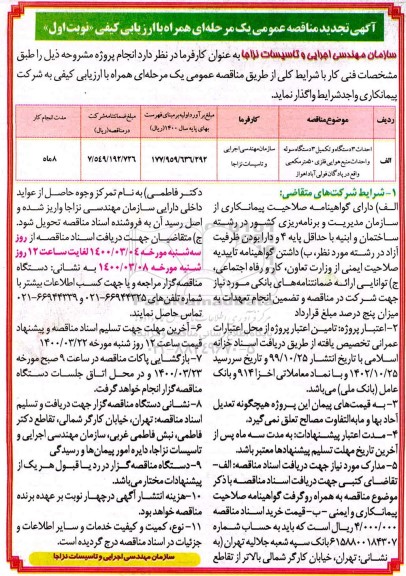 آگهی تجدید مناقصه عمومی یک مرحله‌ای همراه با ارزیابی کیفی «نوبت اول»
سازمان مهندسی اجرایی و تاسیسات نزاجا به عنوان کارفرما در نظر دارد انجام پروژه مشروحه ذیل را طبق
مشخصات فنی کار با شرایط کلی از طریق مناقصه عمومی یک مرحله‌ای همراه با ارزیابی کیفی به شرکت
پیمانکاری واجدشرایط واگذار نماید.
ردیف موضوع مناقصه کارفرما مبلغ برآورد اولیه بر مبنای فهرست بهای پایه سال ۱۴۰۰ (ریال) مبلغ ضمانتنامه شرکت در مناقصه (ریال) مدت انجام کار
الف احداث ۳ دستگاه و تکمیل ۳ دستگاه سوله و احداث منبع هوایی فلزی ۵۰ مترمکعبی واقع در پادگان فولی آباد اهواز سازمان مهندسی اجرایی و تاسیسات نزاجا ۱۷۷/۹۵۹/۶۳۶/۲۹۲ ۷/۵۴۹/۱۹۲/۷۲۶ ۸ ماه
۱- شرایط شرکت‌های متقاضی:
الف) دارای گواهینامه صلاحیت پیمانکاری از
سازمان مدیریت و برنامه‌ریزی کشور در رشته
ساختمان و ابنیه با حداقل پایه ۴ و دارا بودن ظرفیت
آزاد در رشته مورد نظر، ب) داشتن گواهینامه تاییدیه
صلاحیت ایمنی از وزارت تعاون، کار و رفاه اجتماعی،
ج) توانایی ارائه ضمانتنامه‌های بانکی مورد نیاز
جهت شرکت در مناقصه و تضمین انجام تعهدات به
میزان پنج درصد مبلغ قرارداد
۲- اعتبار پروژه: تامین اعتبار پروژه از محل اعتبارات
عمرانی تخصیص یافته از طریق دریافت اسناد خزانه
اسلامی با تاریخ انتشار ۹۹/۱۰/۲۵ و تاریخ سررسید
۱۴۰۲/۱۰/۲۵ و با نماد معاملاتی اخزا ۹۱۴ و بانک
عامل (بانک ملی) می‌باشد.
۳- به قیمت‌های پیمان این پروژه هیچگونه تعدیل
آحاد بها و مابه‌التفاوت مصالح تعلق نمی‌گیرد.
۴- مدت اعتبار پیشنهادات: به مدت سه ماه پس از
آخرین تاریخ مهلت تسلیم پیشنهادها معتبر باشد.
۵- مدارک مورد نیاز جهت دریافت اسناد مناقصه: الف-
تقاضای کتبی جهت دریافت اسناد مناقصه با ذکر
موضوع مناقصه به همراه رو گرفت گواهینامه صلاحیت
پیمانکاری و ایمنی - ب- قیمت خرید اسناد مناقصه
۴/۰۰۰/۰۰۰ ریال است که باید به حساب شماره
۶۱۵۸۸۰۰۱۸۴۳۰۷ بانک سپه شعبه جلالیه تهران (به
نشانی: تهران، خیابان کارگر شمالی بالاتر از تقاطع
دکتر فاطمی) به نام تمرکز وجوه حاصل از عواید
داخلی دارایی سازمان مهندسی نزاجا واریز شده و
اصل رسید آن به فروشنده اسناد مناقصه تحویل شود.
ج) متقاضیان جهت دریافت اسناد مناقصه از روز
سه‌شنبه مورخه ۱۴۰۰/۰۳/۰۴ لغایت ساعت ۱۲ روز
شنبه مورخه ۱۴۰۰/۰۳/۰۸ به نشانی: دستگاه
مناقصه‌گزار مراجعه و یا جهت کسب اطلاعات بیشتر با
شماره تلفن‌های ۶۶۹۴۴۳۲۵-۰۲۱ و ۶۶۹۴۴۳۳۹-۰۲۱
تماس حاصل نمایند.
۶- آخرین مهلت جهت تسلیم اسناد مناقصه و پیشنهاد
قیمت ساعت ۱۲ روز شنبه مورخه ۱۴۰۰/۰۳/۲۲
۷- بازگشایی پاکات مناقصه در ساعت ۹ صبح مورخه
۱۴۰۰/۰۳/۲۳ و در محل اتاق جلسات دستگاه
مناقصه‌گزار انجام خواهد گرفت.
۸- نشانی دستگاه مناقصه‌گزار جهت دریافت و تسلیم
اسناد مناقصه: تهران، خیابان کارگر شمالی، تقاطع دکتر
فاطمی، نبش فاطمی غربی، سازمان مهندسی اجرایی و
تاسیسات نزاجا، دایره امور پیمان‌ها و رسیدگی
۹- دستگاه مناقصه‌گزار در رد یا قبول هر یک از
پیشنهادات مختار می‌باشد.
۱۰- هزینه انتشار آگهی در چهار نوبت بر عهده برنده
مناقصه خواهد بود.
۱۱- نوع، کمیت و کیفیت خدمات و سایر اطلاعات و
جزئیات در اسناد مناقصه درج گردیده است.
سازمان مهندسی اجرایی و تاسیسات نزاجا